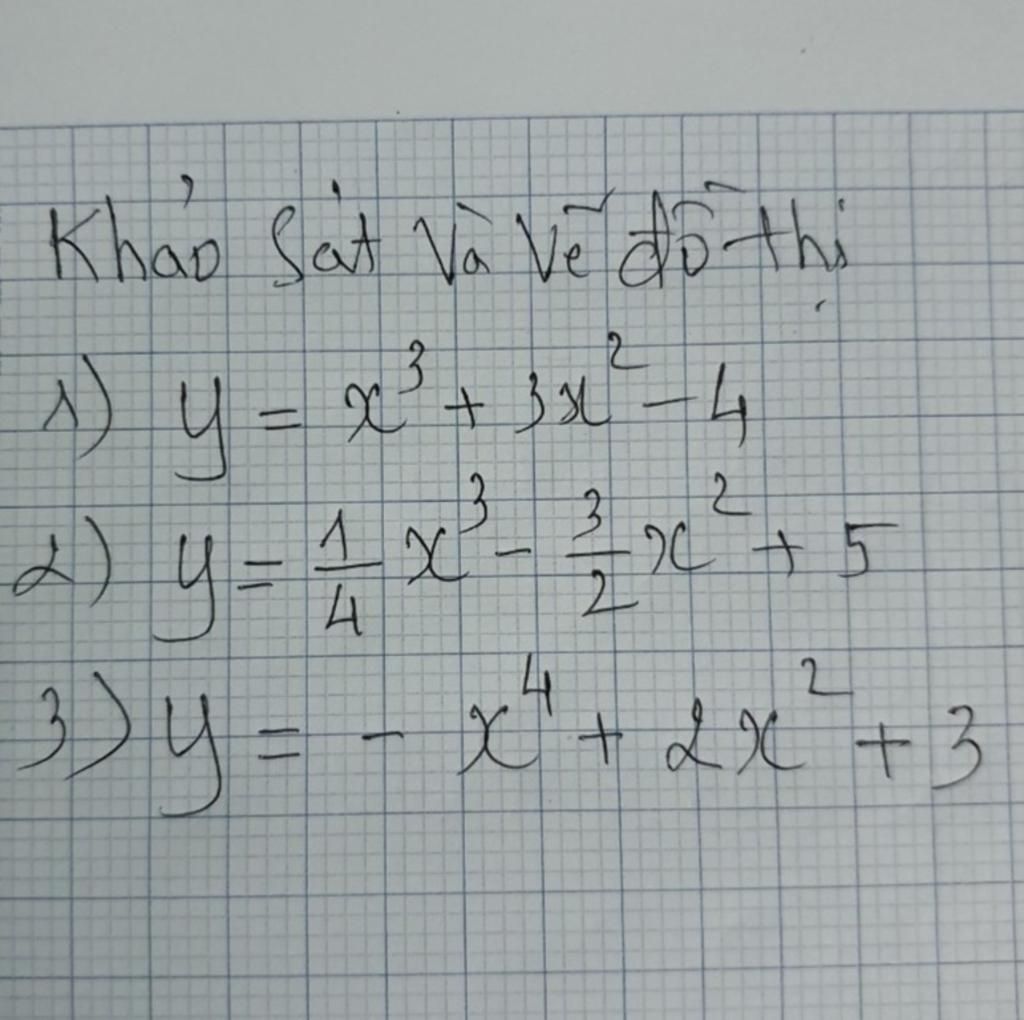 Khảo sát và vẽ đồ thị
1) y = x³ + 3x² - 4
2) y = 1/4 x³ - 3/2 x² + 5
3) y = - x⁴ + 2x² + 3